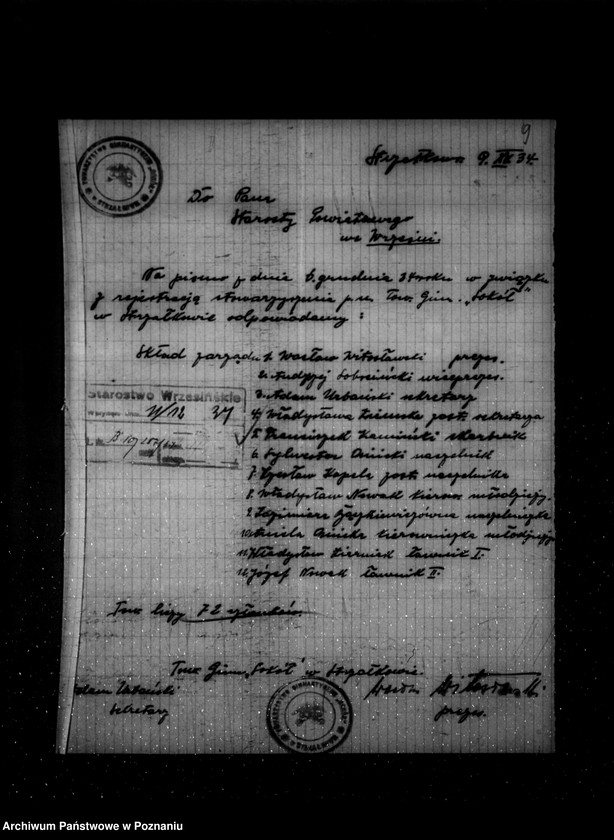 9
Strzałkowo 9. XII 34.
TOWARZYSTWO GIMNASTYCZNE "SOKÓŁ" W STRZAŁKOWIE
Do Pana
Starosty Powiatowego
we Wrześni.
Na pismo z dnia 6 grudnia 34 roku w związku
z rejestracją stowarzyszenia p.n. Tow. Gim. „Sokół"
w Strzałkowie odpowiadamy:
Skład zarządu 1. Wacław Witosławski prezes.
2. Andrzej wiceprezes.
3. Adam Urbański sekretarz
4. Władysława zast. sekretarza
5. Franciszek Kamiński skarbnik
6. Sylwester Osiński naczelnik
7. Czesław Kapela zast. naczelnika
8. Władysław Nowak kierow. młodzieży.
9. Kazimiera naczelniczka
10. Aniela Osińska kierowniczka młodzieży
11. Władysław ławnik I.
12. Józef Nowak ławnik II.
Starostwo Wrzesińskie
11/12 34
Tow. liczy 72 członków.
Tow. Gim. „Sokół" w Strzałkowie.
Adam Urbański
sekretarz
prezes.
TOWARZYSTWO GIMNASTYCZNE "SOKÓŁ" W STRZAŁKOWIE
Archiwum Państwowe w Poznaniu